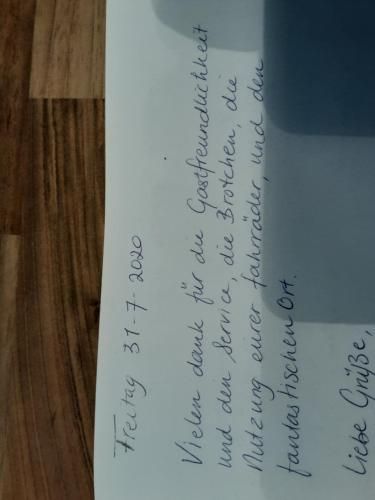 Freitag 31-7-2020
Vielen dank für die Gastfreundlichkeit
und den Service, die Brötchen, die
Nutzung eurer fahrräder, und den
fantastischen Ort.
Liebe Grüße,